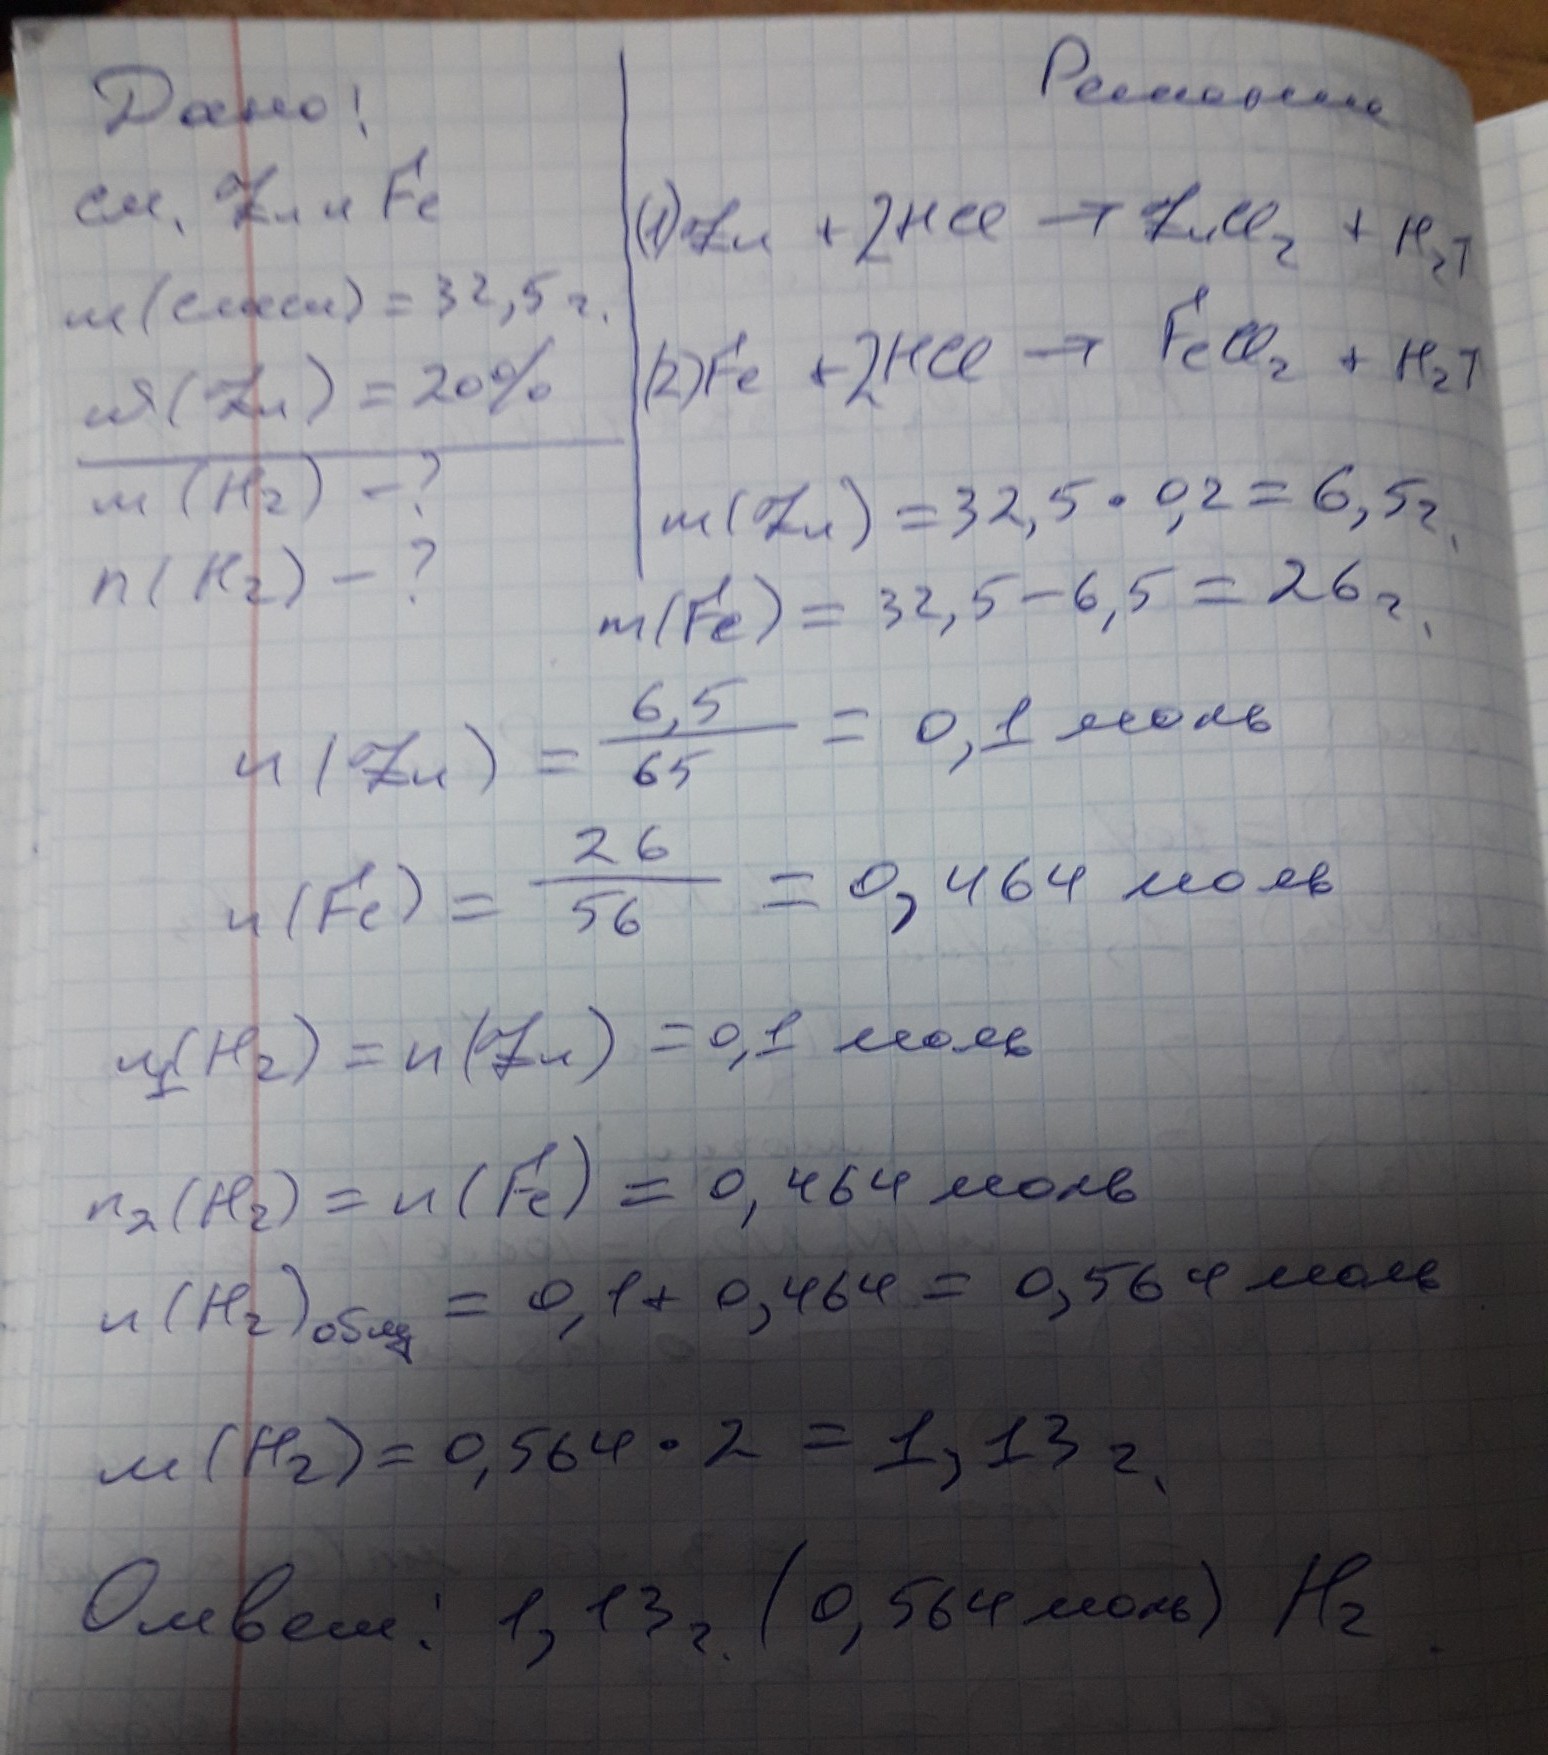 Дано!
см. Zn и Fe
m(смеси) = 32,5 г.
ω(Zn) = 20%
m(H₂) - ?
n(H₂) - ?
Решение
(1) Zn + 2HCl → ZnCl₂ + H₂↑
(2) Fe + 2HCl → FeCl₂ + H₂↑
m(Zn) = 32,5 · 0,2 = 6,5 г.
m(Fe) = 32,5 - 6,5 = 26 г.
n(Zn) = 6,5/65 = 0,1 моль
n(Fe) = 26/56 = 0,464 моль
n₁(H₂) = n(Zn) = 0,1 моль
n₂(H₂) = n(Fe) = 0,464 моль
n(H₂)общ = 0,1 + 0,464 = 0,564 моль
m(H₂) = 0,564 · 2 = 1,13 г.
Ответ: 1,13 г. (0,564 моль) H₂.